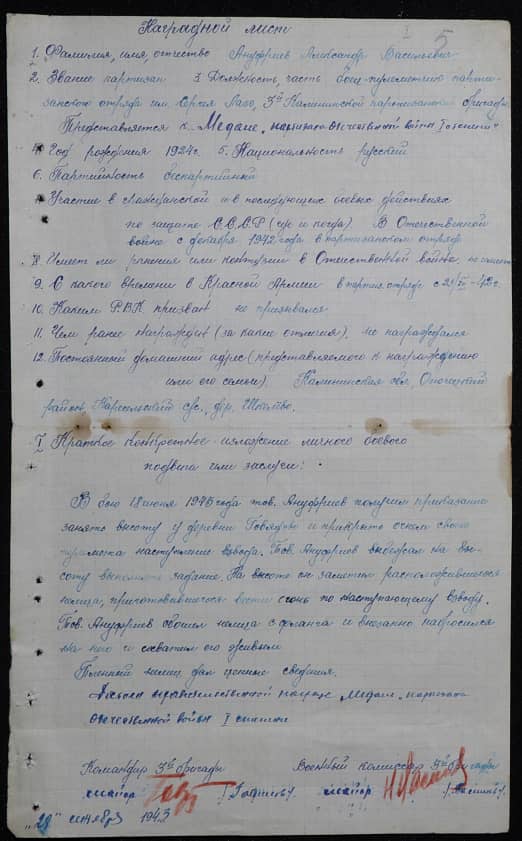 Наградной лист
5
1. Фамилия, имя, отчество Ануфриев Александр Васильевич
2. Звание партизан 3. Должность, часть боец-пулеметчик парти-
занского отряда им. Сергея Лазо, 3й Калининской партизанской бригады
Представляется к Медаль „партизан отечественной войны I степени"
4. Год рождения 1924г. 5. Национальность русский
6. Партийность беспартийный
Участие в гражданской и в последующих боевых действиях
по защите С.С.С.Р (где и когда) В Отечественной
войне с декабря 1942 года в партизанском отряде
Имеет ли ранения или контузии в Отечественной войне, не имеет
9. С какого времени в Красной Армии в партиз. отряде с
10. Каким Р.В.К. призван не призывался
11. Чем ранее награжден (за какие отличия). не награждался
12. Постоянный домашний адрес (представляемого к награждению
или его семьи). Калининская обл, Опочецкий
район, с/с., дер.
I Краткое конкретное изложение личного боевого
подвига или заслуги:
В бою 18 июня 1943 года тов. Ануфриев получил приказание
занять высоту у деревни и прикрыть огнем своего
пулемета наступление взвода. Тов. Ануфриев выбежал на вы-
соту выполнять задание. На высоте он заметил расположившегося
немца, приготовившегося вести огонь по наступающему взводу.
Тов. Ануфриев обошел немца с фланга и внезапно набросился
на него и схватил его живым
Пленный немец дал ценные сведения.
Достоин правительственной награде Медаль „партизан
отечественной войны I степени
Командир 3й бригады Военный комиссар 3й бригады
майор майор
1943